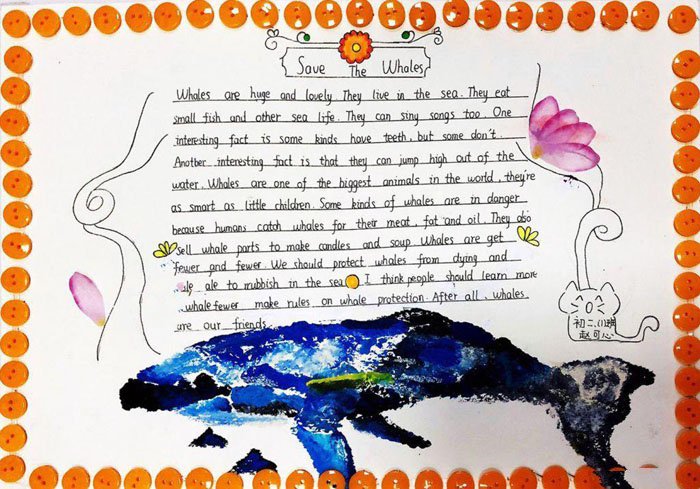 Save The Whales
Whales are huge and lovely. They live in the sea. They eat
small fish and other sea life. They can sing songs too. One
interesting fact is some kinds have teeth, but some don't.
Another interesting fact is that they can jump high out of the
water. Whales are one of the biggest animals in the world, they're
as smart as little children. Some kinds of whales are in danger
because humans catch whales for their meat, fat and oil. They also
sell whale parts to make candles and soup. Whales are get
fewer and fewer. We should protect whales from dying and
ale to rubbish in the sea. I think people should learn more
whale fewer make rules on whale protection. After all, whales
are our friends.
初二
赵可心